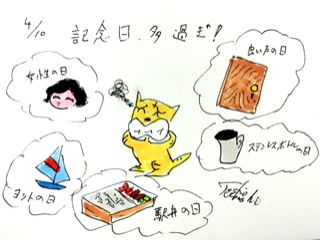 4/10 記念日、多過ぎ!
女性の日
良い戸の日
ステンレスボトルの日
ヨットの日
駅弁の日